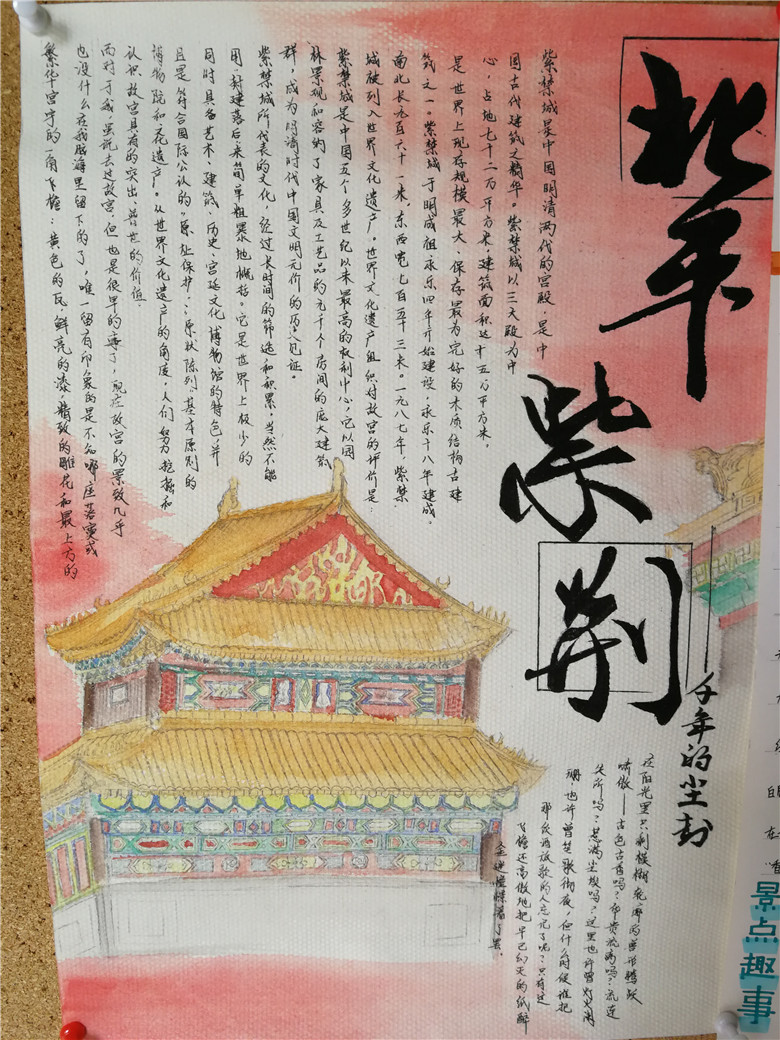 北平
紫荆
——千年的尘封
紫禁城是中国明清两代的宫殿，是中
国古代建筑之精华。紫禁城以三大殿为中
心，占地七十二万平方米，建筑面积达十五万平方米，
是世界上现存规模最大、保存最为完好的木质结构古建
筑之一。紫禁城于明成祖永乐四年开始建设，永乐十八年建成。
南北长九百六十一米，东西宽七百五十三米。一九八七年，紫禁
城被列入世界文化遗产。世界文化遗产组织对故宫的评价是：
紫禁城是中国五个多世纪以来最高的权利中心，它以园
林景观和容纳了家具及工艺品的九千个房间的庞大建筑
群，成为明清时代中国文明无价的历史见证。
紫禁城所代表的文化，经过长时间的筛选和积累，当然不能
用"封建落后"来简单粗暴地概括。它是世界上极少的
同时具备艺术、建筑、历史、宫廷文化、博物馆的特色，并
且是符合国际公认的"原址保护"、"原状陈列"基本原则的
博物院和文化遗产。从世界文化遗产的角度，人们努力挖掘和
认识故宫具有的突出、普世的价值。
而对于我，虽说去过故宫，但也是很早的事了，现在故宫的景致几乎
也没什么在我脑海里留下的了，唯一留有印象的是不知哪座落寞或
繁华宫宇的一角飞檐：黄色的瓦，鲜亮的漆，精致的雕花和最上方的
在阳光里只剩模糊轮廓的兽形腾跃
啸傲——古色古香吗？
失所吗？惹满尘埃吗？这里也许曾灯火阑
珊也许曾楚歌彻夜，但什么时候谁把
那夜酒放歌的人忘记了呢？只有这
飞檐还高傲地把早已幻灭的纸醉
金迷憧憬着了罢。
景点趣事